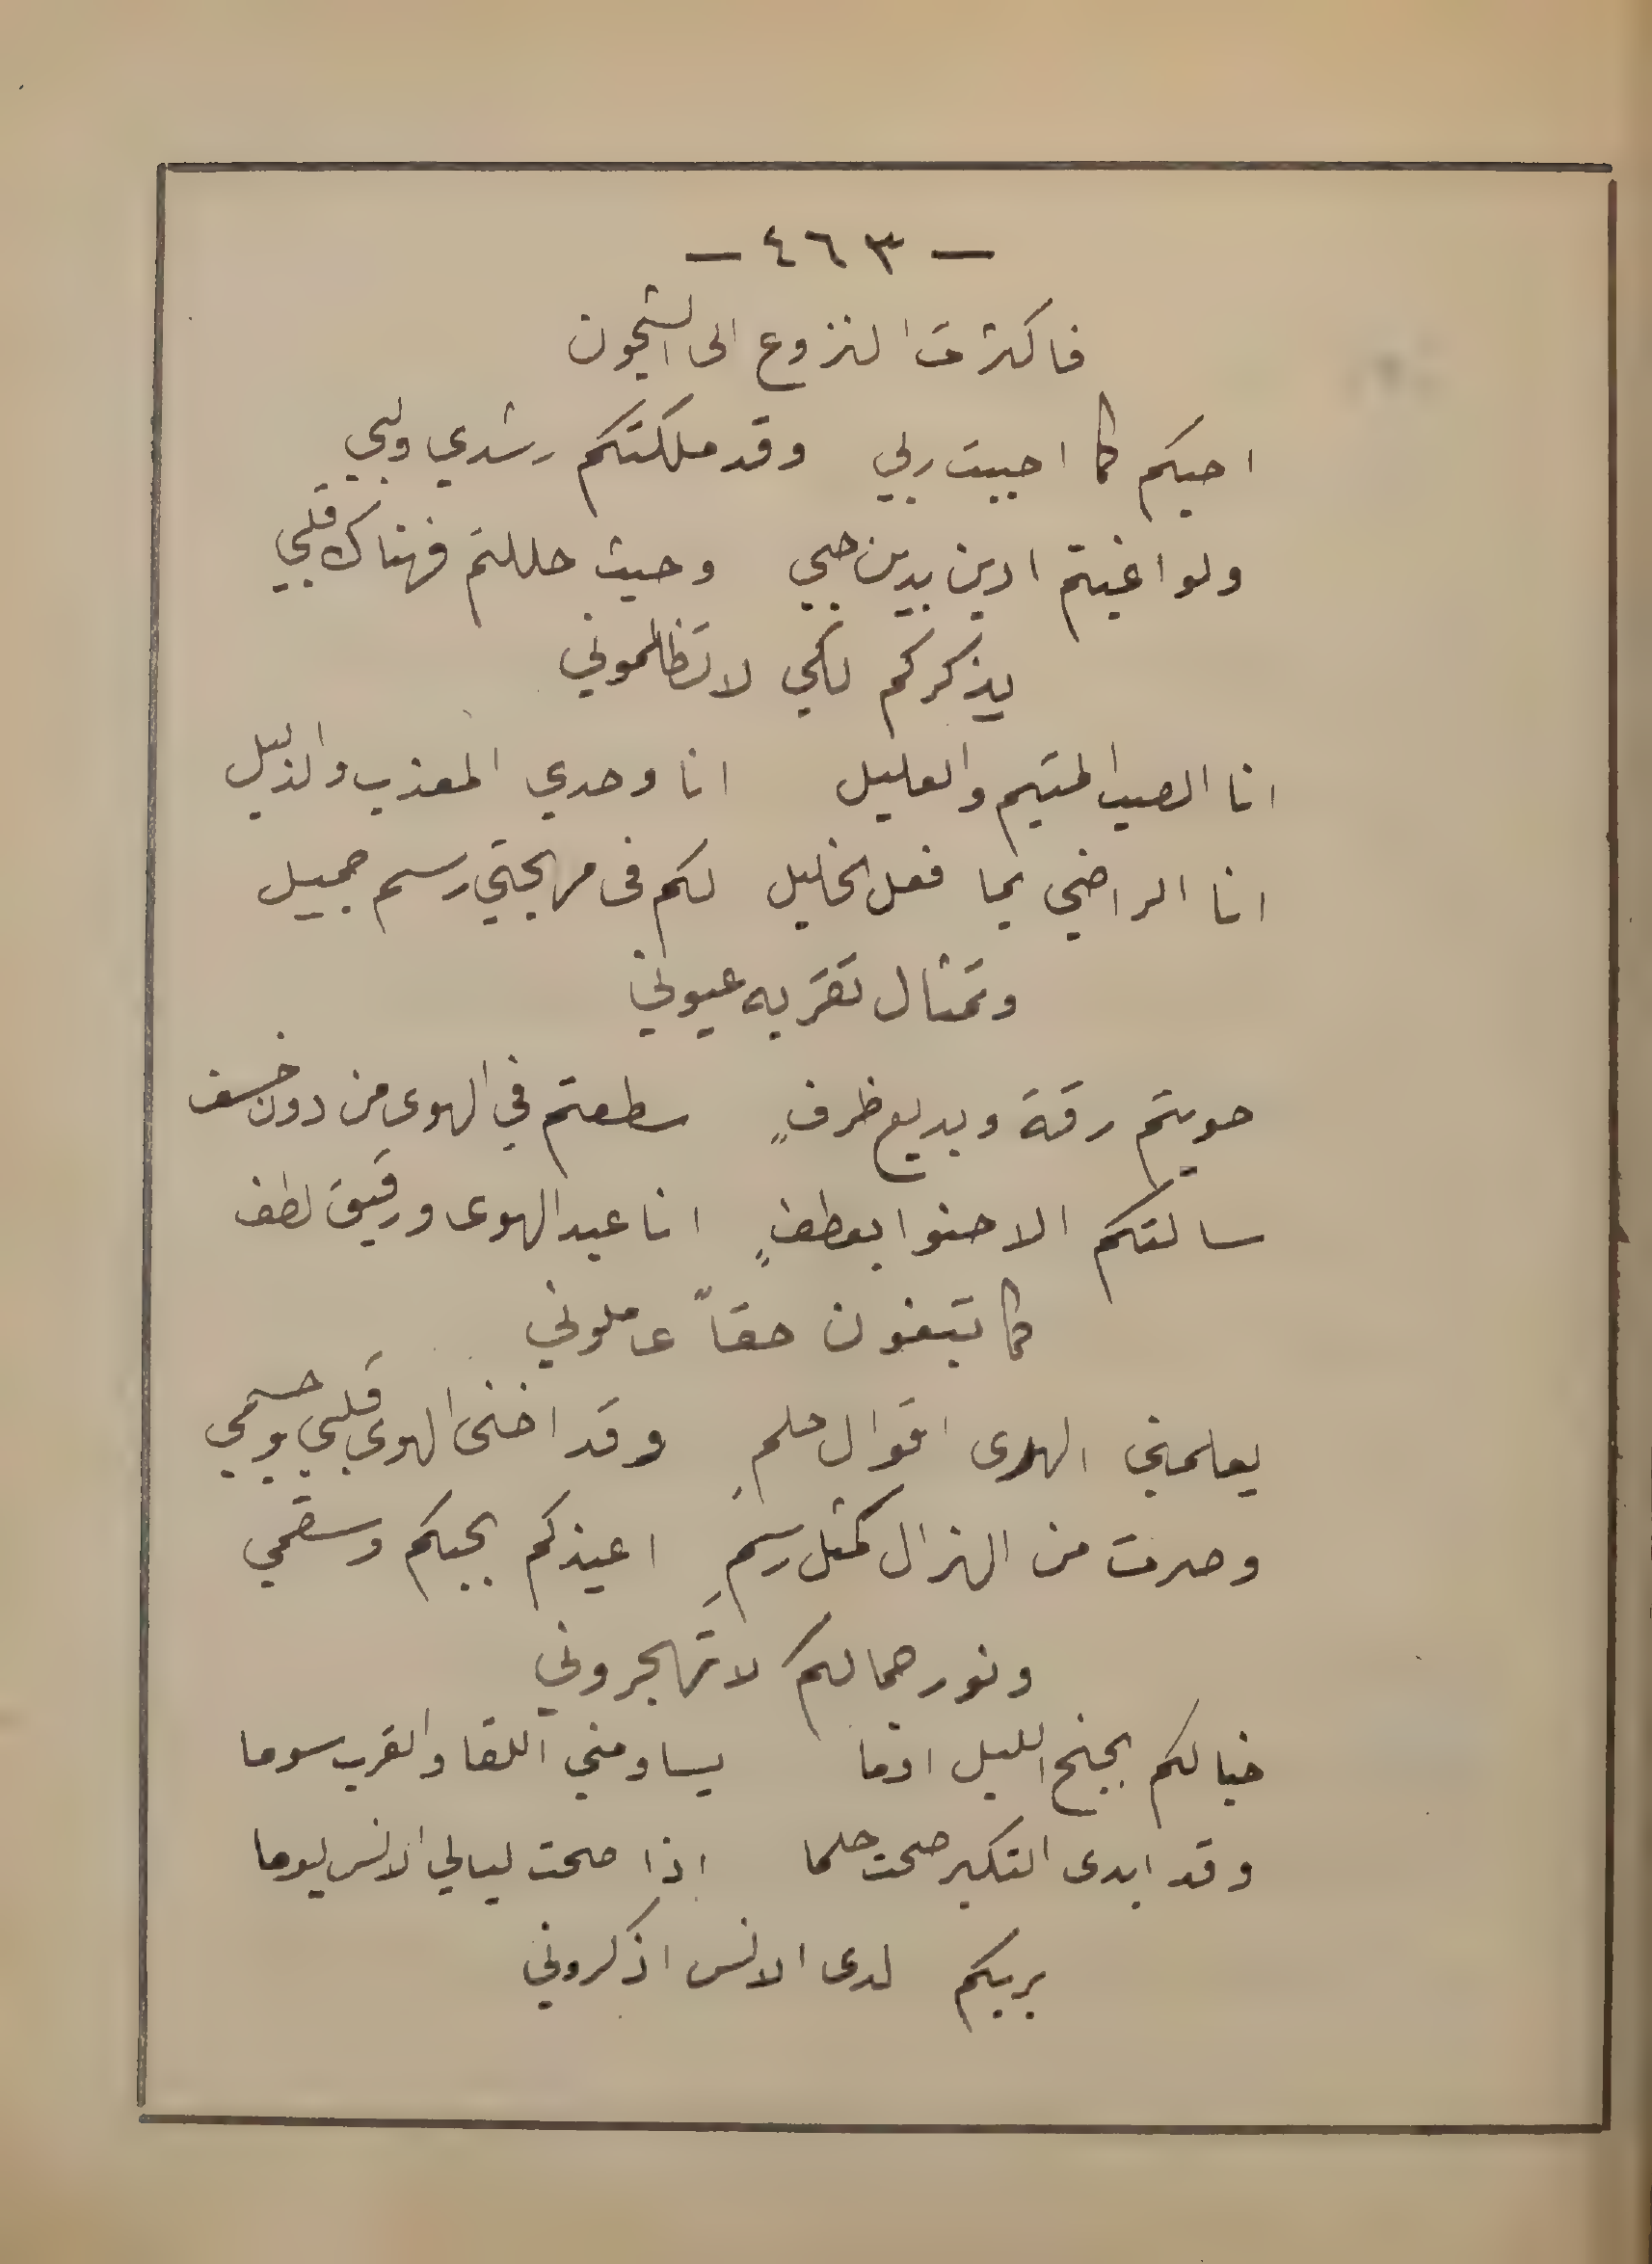 — ٤٦٣ —
فاكثرت النزوع الى الشجون
احبكم كما احببت ربي وقد ملكتكم رشدي ولبي
ولو اغبتم ادين بدين حبي وحيث حللتم فهناك قلبي
يذكركم لكي لا تظلموني
انا الصب المتيم والعليل انا وحدي المعذب والذليل
انا الراضي بما فعل الخليل لكم في مهجتي رسم جميل
وتمثال تقرَّ به عيوني
حويتم رقة وبديع ظرفٍ سطعتم في الهوى من دون خسف
سالتكم الا حنوا بعطفٍ انا عبد الهوى ورقيق لطف
كما تبغون حقاً عاملوني
يعلمني الهوى اقوال حلمِ وقد اضنى الهوى قلبي وجسمي
وصرت من الهزال كمثل رسمِ اعيذكم بحبكم وسقمي
ونور جمالكم لا تهجروني
خيالكم بجنح الليل اوما يساومني اللقا والقرب سوما
وقد ابدى التكبر صحت حلما اذا صحت ليالي الانس يوما
بربكم لدى الانس اذكروني